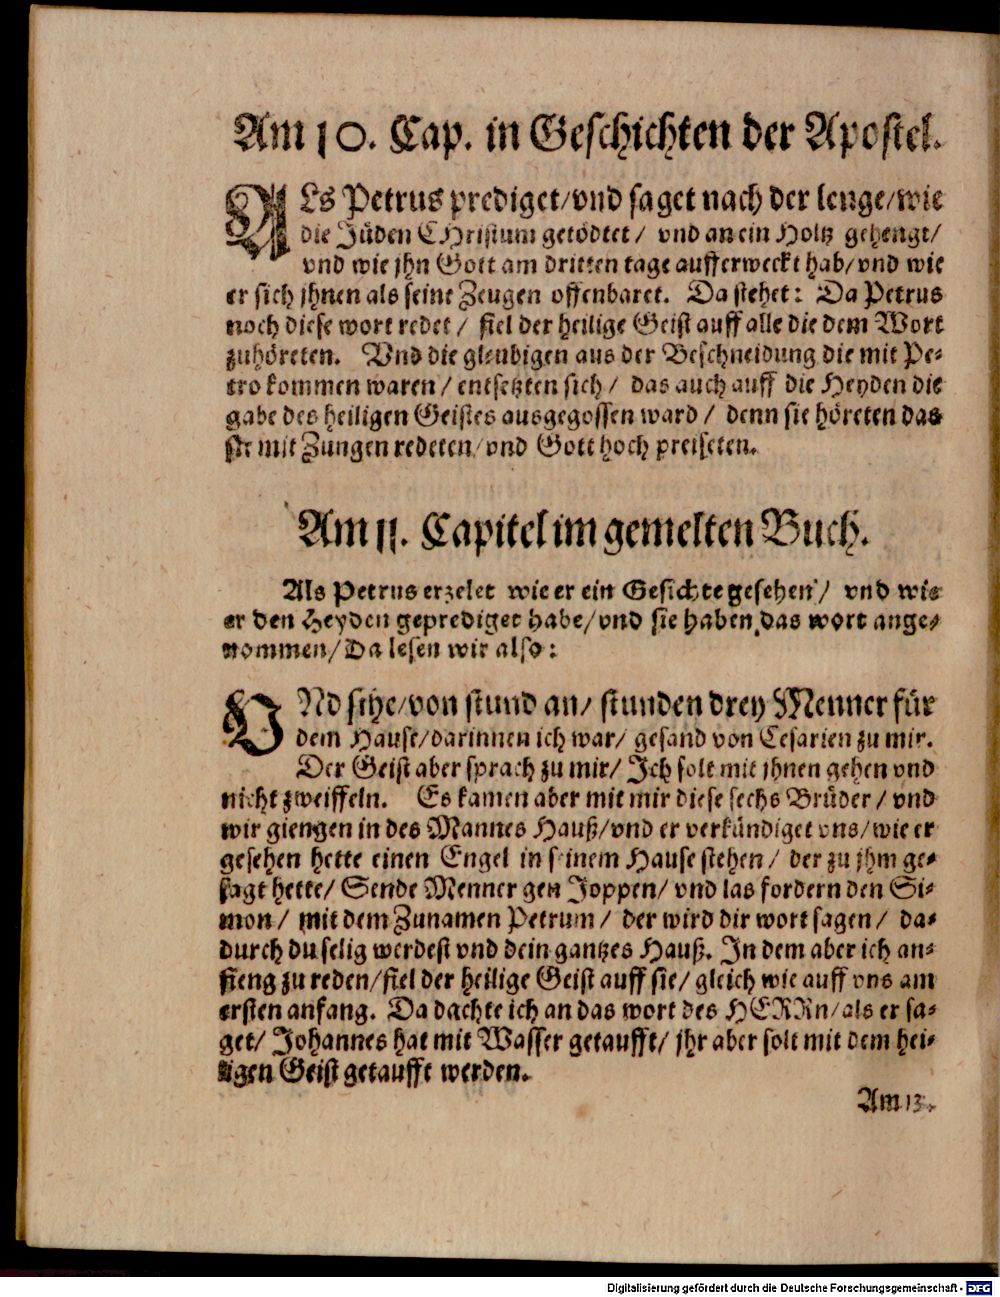 Am 10. Cap. in Geschichten der Apostel.
ALs Petrus prediget/vnd saget nach der lenge/wie
die Jüden CHristum getödtet/ vnd an ein Holtz gehengt/
vnd wie jhn Gott am dritten tage aufferweckt hab/vnd wie
er sich jhnen als seine Zeugen offenbaret. Da stehet: Da Petrus
noch diese wort redet/ fiel der heilige Geist auff alle die dem Wort
zuhöreten. Vnd die gleubigen aus der Beschneidung die mit Pe-
tro kommen waren/ entsetzten sich/ das auch auff die Heyden die
gabe des heiligen Geistes ausgegossen ward/ denn sie höreten das
sie mit Zungen redeten/vnd Gott hoch preiseten.
Am 11. Capitel im gemelten Buch.
Als Petrus erzelet wie er ein Gesichte gesehen/ vnd wie
er den Heyden geprediget habe/vnd sie haben das wort ange-
nommen/Da lesen wir also:
VNd sihe/von stund an/ stunden drey Menner für
dem Hause/darinnen ich war/ gesand von Cesarien zu mir.
Der Geist aber sprach zu mir/ Ich solt mit jhnen gehen vnd
nicht zweiffeln. Es kamen aber mit mir diese sechs Brüder/ vnd
wir giengen in des Mannes Hauß/vnd er verkündiget vns/wie er
gesehen hette einen Engel in seinem Hause stehen/ der zu jhm ge-
sagt hette/ Sende Menner gen Joppen/ vnd las fordern den Si-
mon/ mit dem Zunamen Petrum/ der wird dir wort sagen/ da-
durch du selig werdest vnd dein gantzes Hauß. In dem aber ich an-
fieng zu reden/fiel der heilige Geist auff sie/ gleich wie auff vns am
ersten anfang. Da dachte ich an das wort des HERRn/als er sa-
get/ Johannes hat mit Wasser getaufft/ jhr aber solt mit dem hei-
ligen Geist getaufft werden.
Am 13.
Digitalisierung gefördert durch die Deutsche Forschungsgemeinschaft - DFG